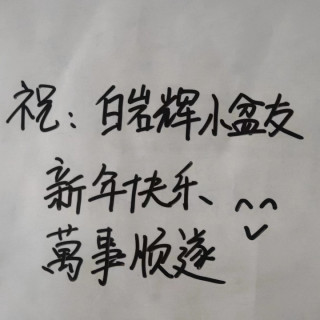 祝：白岩辉小盆友
新年快乐、
萬事顺遂